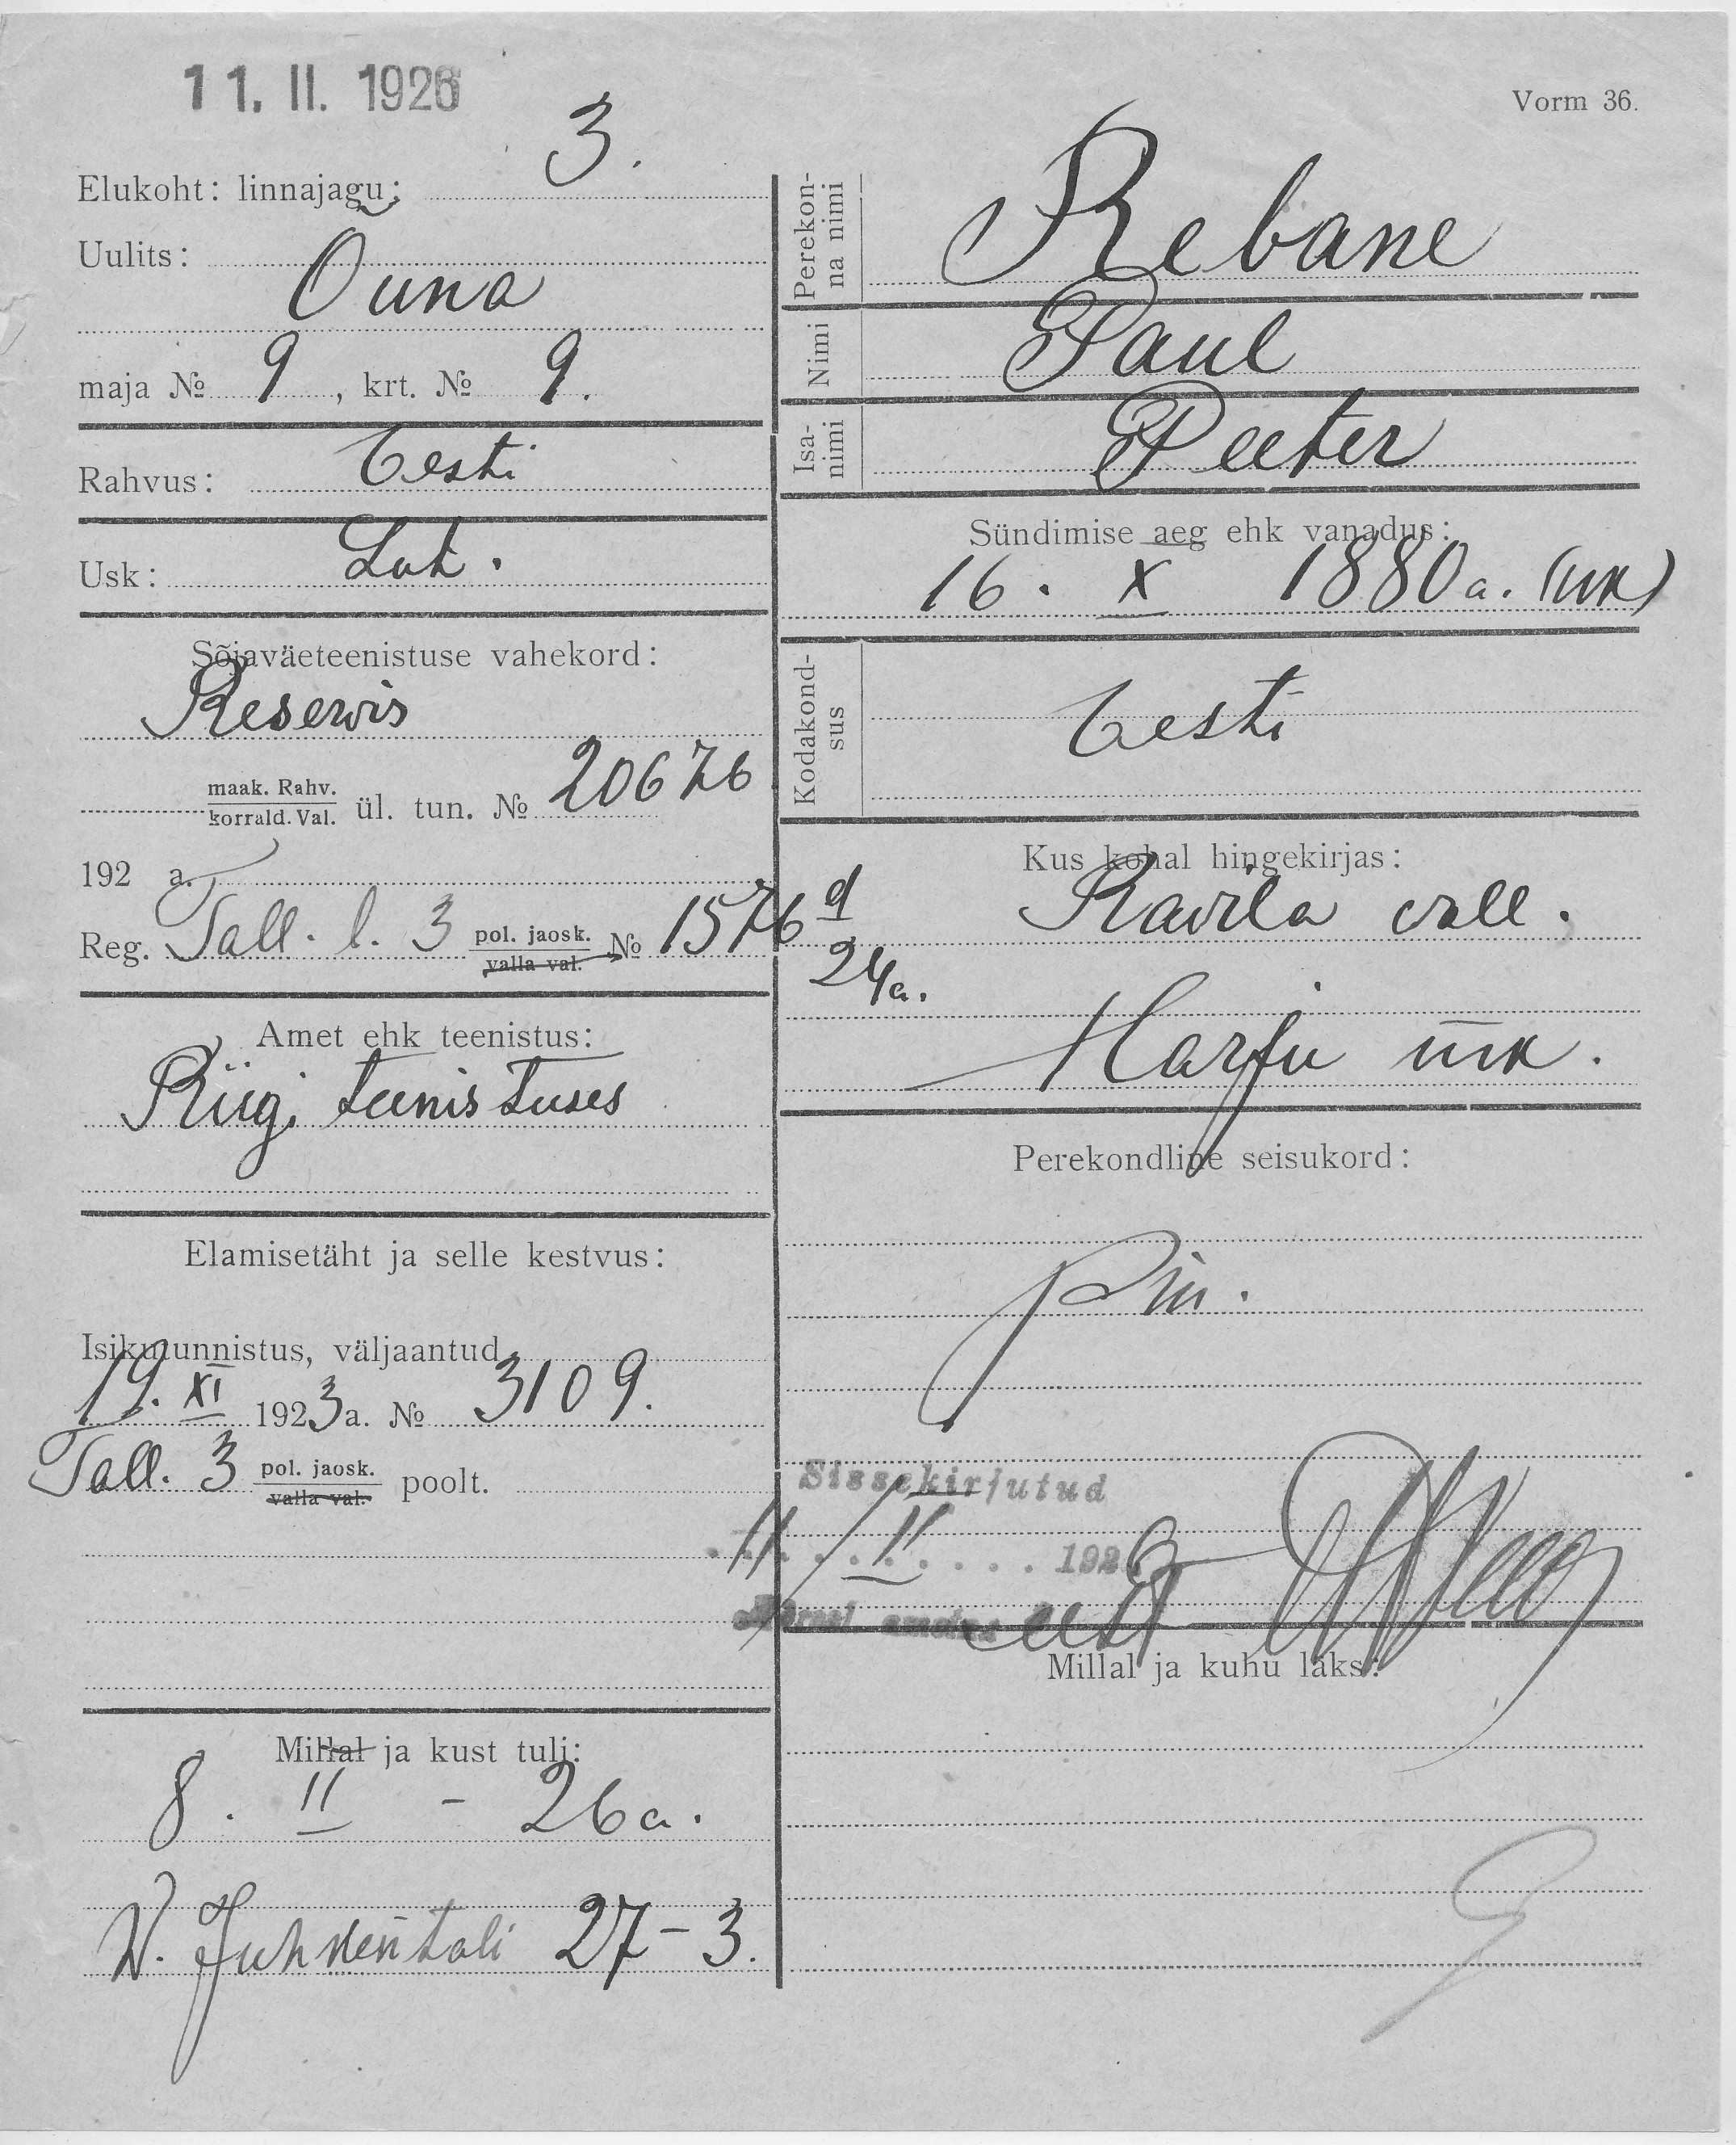 11. II. 1926
Vorm 36.
Elukoht: linnajagu: 3.
Uulits:
Õuna
maja № 9, krt. № 9.
Rahvus: Eesti
Usk: Lut.
Sõjaväeteenistuse vahekord:
Reserwis
maak. Rahv.
korrald. Val. ül. tun. № 20676
192 a.
Reg. Tall. l. 3 pol. jaosk. № 1576 d
valla val.
24a.
Amet ehk teenistus:
Riigi teenistuses
Elamisetäht ja selle kestvus:
Isikutunnistus, väljaantud
19. XI 1923a. № 3109.
Tall. 3 pol. jaosk. poolt.
valla val.
Millal ja kust tuli:
8. II - 26a.
W. Juhkentali 27-3.
Perekon-
na nimi Rebane
Nimi Paul
Isa-
nimi Peeter
Sündimise aeg ehk vanadus:
16. X 1880a. (uk)
Kodakond-
sus Eesti
Kus kohal hingekirjas:
Ravila vall.
Harju mk.
Perekondline seisukord:
Sissekirjutud
11/II 1926
Millal ja kuhu läks: